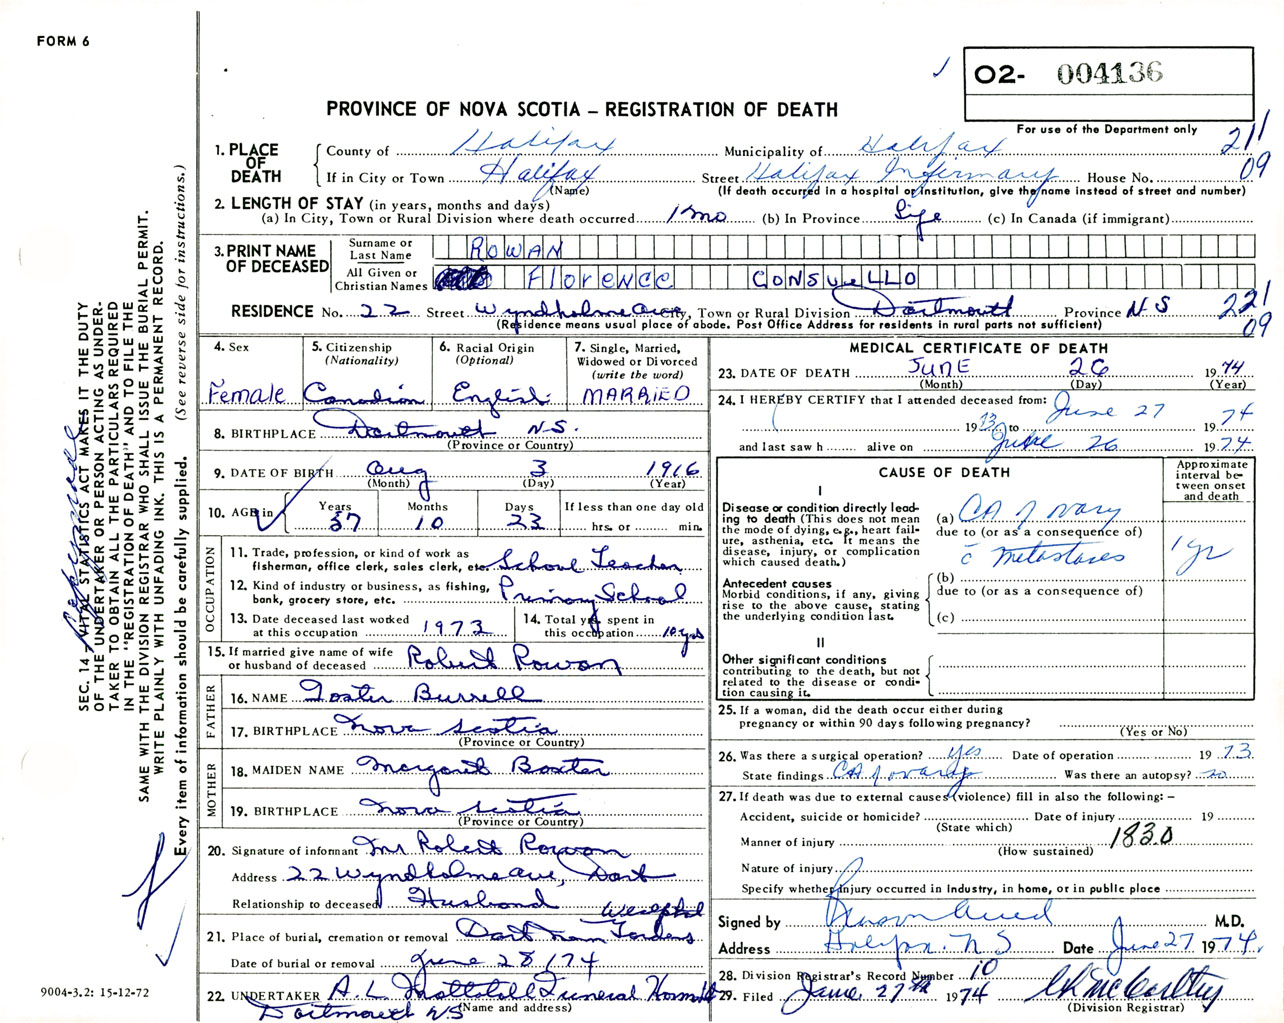 FORM 6
O2- 004136
PROVINCE OF NOVA SCOTIA – REGISTRATION OF DEATH
For use of the Department only
211
09
1. PLACE OF DEATH
County of Halifax Municipality of Halifax
If in City or Town Halifax (Name) Street Halifax Infirmary House No.
(If death occurred in a hospital or institution, give the name instead of street and number)
2. LENGTH OF STAY (in years, months and days)
(a) In City, Town or Rural Division where death occurred 1 mo (b) In Province Life (c) In Canada (if immigrant)
3. PRINT NAME OF DECEASED
Surname or Last Name ROWAN
All Given or Christian Names Florence Consuello
RESIDENCE No. 22 Street Wyndholme Ave City, Town or Rural Division Dartmouth Province N S
(Residence means usual place of abode. Post Office Address for residents in rural parts not sufficient)
221
09
4. Sex Female
5. Citizenship (Nationality) Canadian
6. Racial Origin (Optional) English
7. Single, Married, Widowed or Divorced (write the word) MARRIED
8. BIRTHPLACE Dartmouth N.S.
(Province or Country)
9. DATE OF BIRTH Aug 3 1916
(Month) (Day) (Year)
10. AGE in Years 57 Months 10 Days 23 If less than one day old hrs. or min.
OCCUPATION
11. Trade, profession, or kind of work as fisherman, office clerk, sales clerk, etc. School Teacher
12. Kind of industry or business, as fishing, bank, grocery store, etc. Primary School
13. Date deceased last worked at this occupation 1973
14. Total yrs. spent in this occupation 10 yrs
15. If married give name of wife or husband of deceased Robert Rowan
FATHER
16. NAME Foster Burrell
17. BIRTHPLACE Nova Scotia
(Province or Country)
MOTHER
18. MAIDEN NAME Margaret Baxter
19. BIRTHPLACE Nova Scotia
(Province or Country)
20. Signature of informant Mr Robert Rowan
Address 22 Wyndholme Ave, Dart
Relationship to deceased Husband
Westphal
21. Place of burial, cremation or removal Dart Mem Gardens
Date of burial or removal June 28/74
22. UNDERTAKER A. L. Mattatall Funeral Home Ltd
(Name and address)
Dartmouth NS
MEDICAL CERTIFICATE OF DEATH
23. DATE OF DEATH JUNE 26 1974
(Month) (Day) (Year)
24. I HEREBY CERTIFY that I attended deceased from:
1973, to June 27 1974
and last saw h alive on June 26 1974
CAUSE OF DEATH
Approximate interval between onset and death
I
Disease or condition directly leading to death (This does not mean the mode of dying, e.g., heart failure, asthenia, etc. It means the disease, injury, or complication which caused death.)
(a) CA of ovary
due to (or as a consequence of)
c̄ metastases 1 yr
Antecedent causes
Morbid conditions, if any, giving rise to the above cause, stating the underlying condition last.
(b)
due to (or as a consequence of)
(c)
II
Other significant conditions contributing to the death, but not related to the disease or condition causing it.
25. If a woman, did the death occur either during pregnancy or within 90 days following pregnancy?
(Yes or No)
26. Was there a surgical operation? yes Date of operation 1973
State findings CA of ovary Was there an autopsy? no
27. If death was due to external causes (violence) fill in also the following: –
Accident, suicide or homicide? Date of injury 19
(State which)
Manner of injury 1830
(How sustained)
Nature of injury
Specify whether injury occurred in Industry, in home, or in public place
Signed by M.D.
Address Halifax. N S Date June 27 1974.
28. Division Registrar's Record Number 10
29. Filed June 27th 1974 McCarthy
(Division Registrar)
SEC. 14 – VITAL STATISTICS ACT MAKES IT THE DUTY
OF THE UNDERTAKER OR PERSON ACTING AS UNDER-
TAKER TO OBTAIN ALL THE PARTICULARS REQUIRED
IN THE "REGISTRATION OF DEATH" AND TO FILE THE
SAME WITH THE DIVISION REGISTRAR WHO SHALL ISSUE THE BURIAL PERMIT.
WRITE PLAINLY WITH UNFADING INK. THIS IS A PERMANENT RECORD.
Every item of information should be carefully supplied. (See reverse side for instructions.)
9004-3.2: 15-12-72